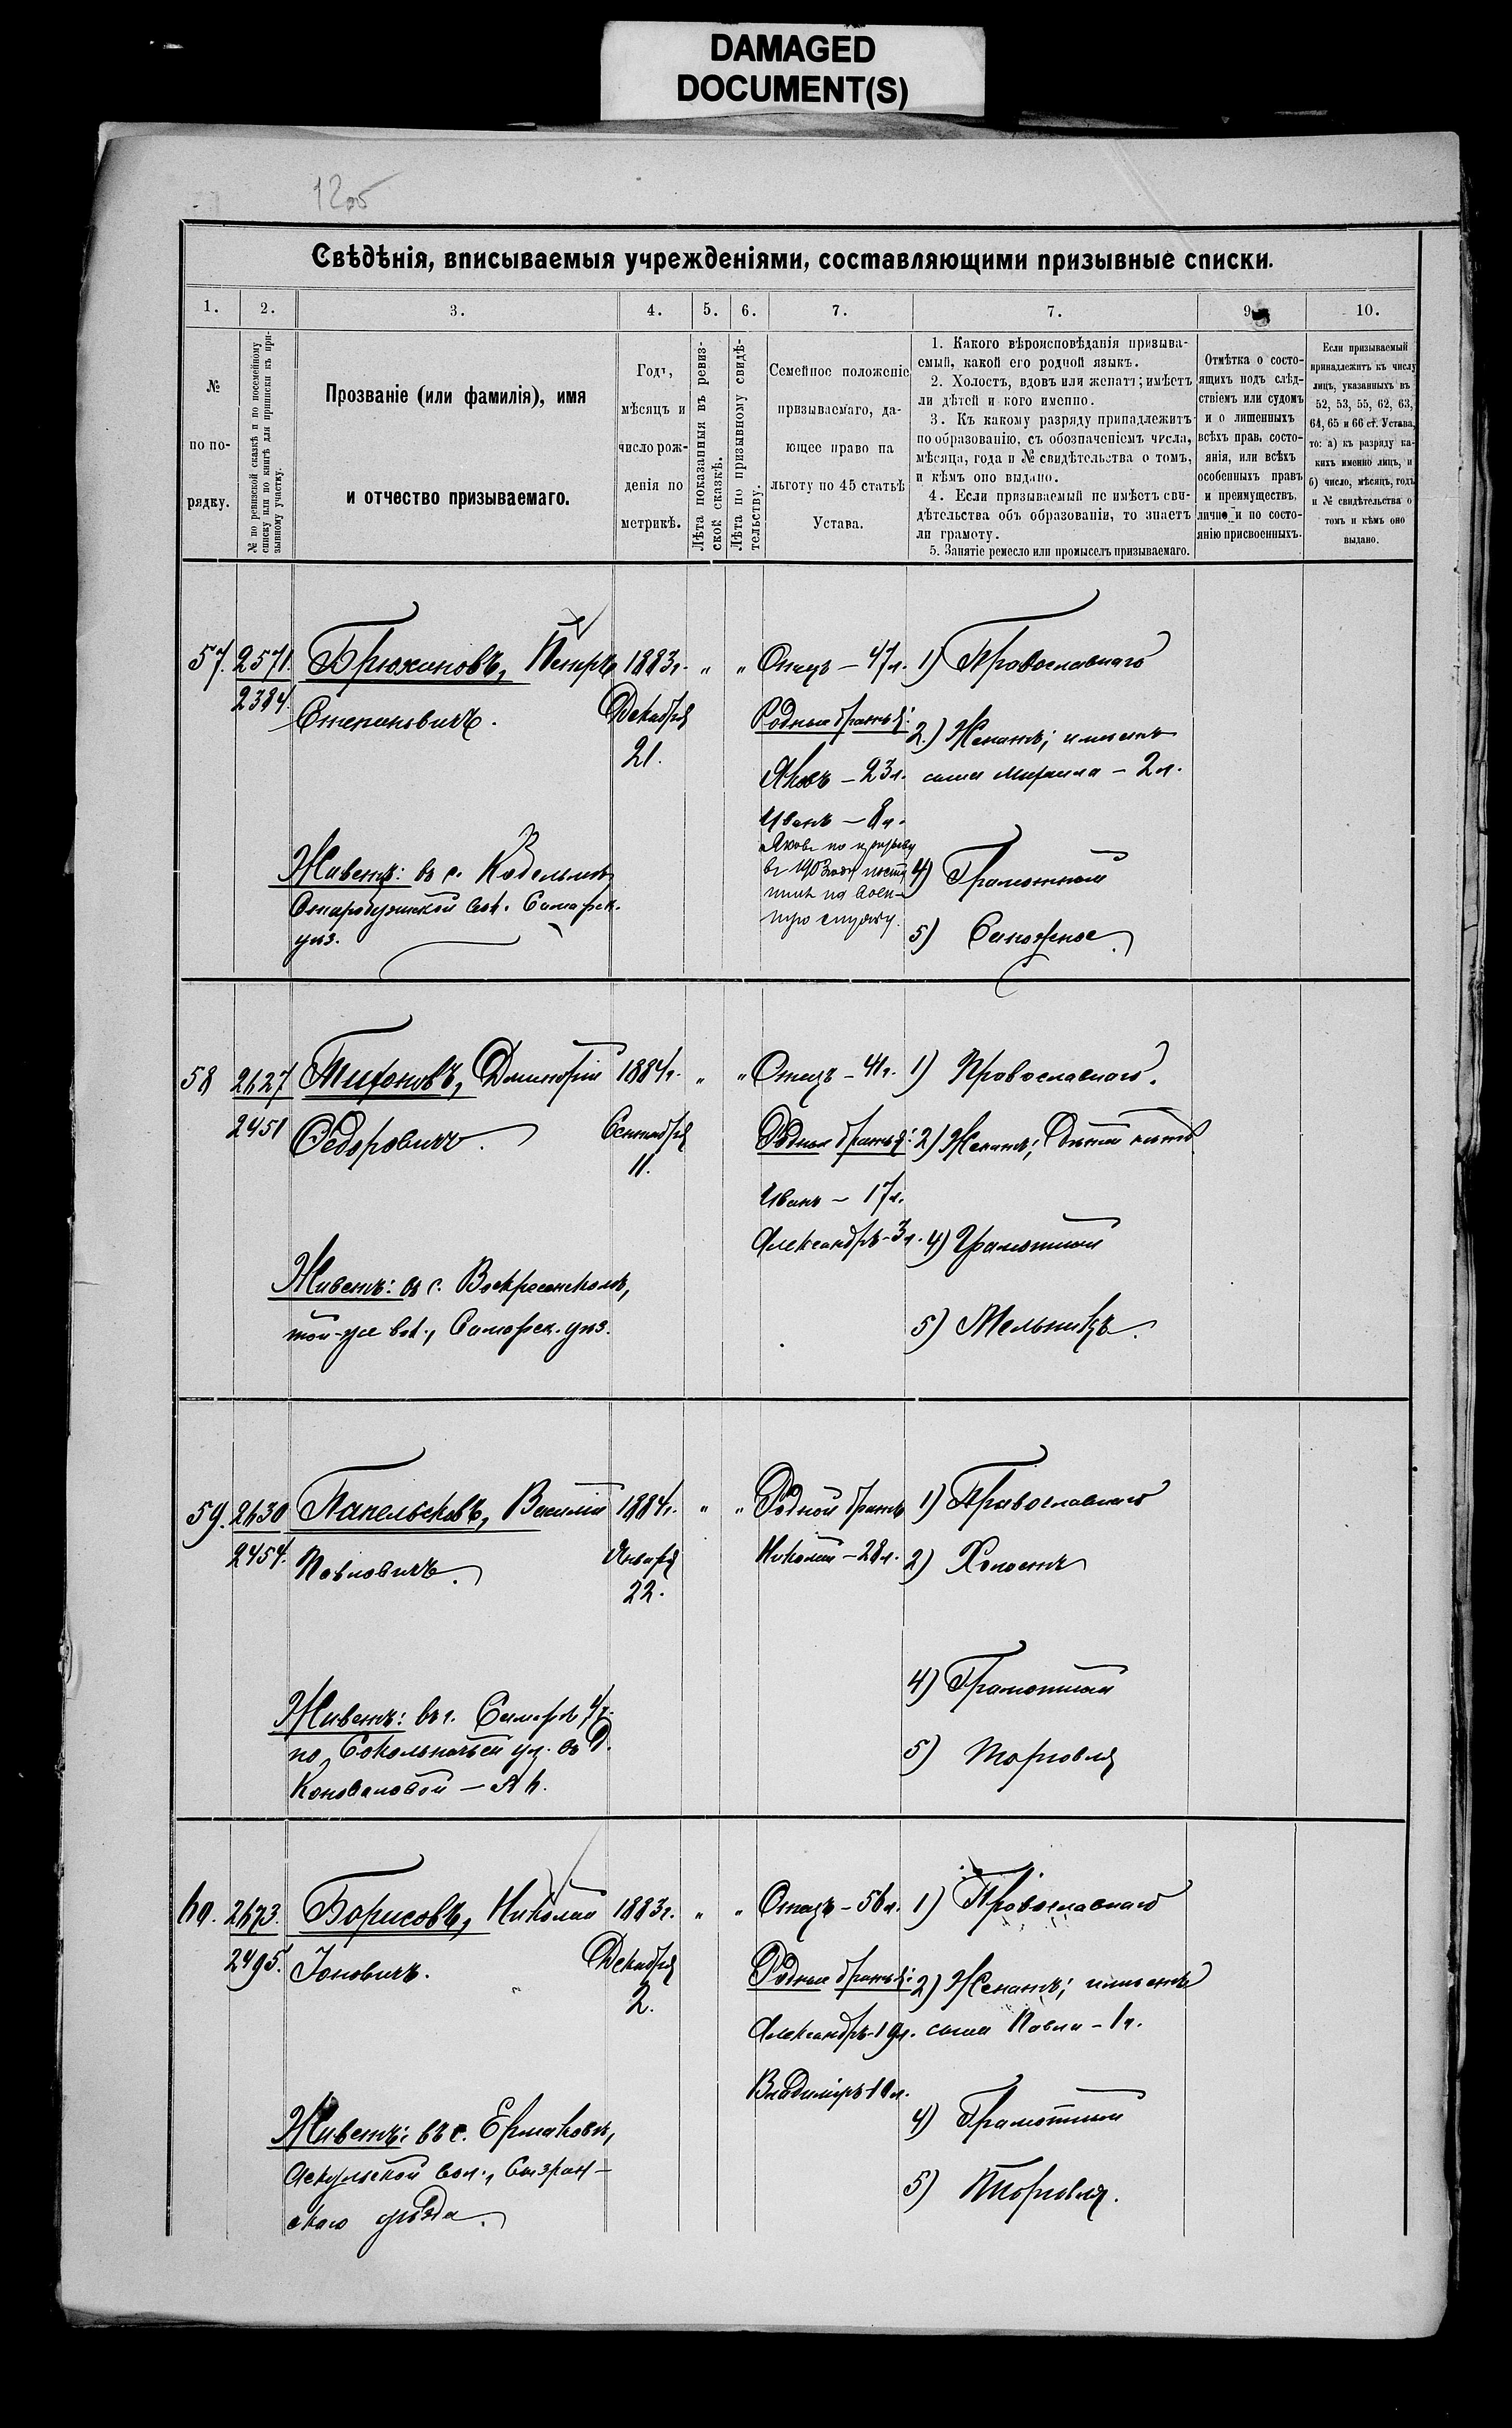 DAMAGED
DOCUMENT(S)
Свѣдѣнія, вписываемыя учрежденіями, составляющими призывные списки.
1. 2. 3. 4. 5. 6. 7. 7. 9 10.
№
по по-
рядку.
№ по ревизской сказкѣ и по посемейному
списку или по книгѣ для приписки къ при-
зывному участку.
Прозваніе (или фамилія), имя
и отчество призываемаго.
Годъ,
мѣсяцъ и
число рож-
денія по
метрикѣ.
Лѣта показанныя въ ревиз-
ской сказкѣ.
Лѣта по призывному свидѣ-
тельству.
Семейное положеніе
призываемаго, да-
ющее право на
льготу по 45 статьѣ
Устава.
1. Какого вѣроисповѣданія призыва-
емый, какой его родной языкъ.
2. Холостъ, вдовъ или женатъ; имѣетъ
ли дѣтей и кого именно.
3. Къ какому разряду принадлежитъ
по образованію, съ обозначеніемъ числа,
мѣсяца, года и № свидѣтельства о томъ,
и кѣмъ оно выдано.
4. Если призываемый не имѣетъ сви-
дѣтельства объ образованіи, то знаетъ
ли грамоту.
5. Занятіе ремесло или промыселъ призываемаго.
Отмѣтка о состо-
ящихъ подъ слѣд-
ствіемъ или судомъ
и о лишенныхъ
всѣхъ прав. состо-
янія, или всѣхъ
особенныхъ правъ
и преимуществъ,
лично и по состо-
янію присвоенныхъ.
Если призываемый
принадлежитъ къ числу
лицъ, указанныхъ въ
52, 53, 55, 62, 63,
64, 65 и 66 ст. Устава,
то: а) къ разряду ка-
кихъ именно лицъ, и
б) число, мѣсяцъ, годъ
и № свидѣтельства о
томъ и кѣмъ оно
выдано.
57.
2571.
2384.
Брюхановъ, Петръ
Степановичъ.
Живетъ: въ с.
Самарск.
уѣз.
1883г.
Декабря
21.
" "
Отецъ – 47л.
Родные братья:
Яковъ – 23л.
Иванъ – 8л.
Яковъ по призыву
въ 1903 году посту
пилъ на воен-
ную службу.
1) Православнаго
2.) Женатъ; имѣетъ
сына Михаила – 2л.
4) Грамотный
5) Сапожное.
58
2627
2451
Тихоновъ, Димитрій
Федоровичъ.
Живетъ: въ с. Воскресенскомъ,
той-же вол., Самарск. уѣз.
1884г.
Сентября
11.
" "
Отецъ – 41г.
Родные братья:
Иванъ – 17л.
Александръ – 3л.
1) Православнаго.
2) Женатъ; Дѣтей нѣтъ
4) Грамотный
5) Мельникъ.
59.
2630
2454.
Папельсковъ, Василій
Павловичъ.
Живетъ: въ г. Самарѣ 4ч.
по Сокольничьей ул. въ д.
Коноваловой –
1884г.
Января
22.
" "
Родной братъ
Николай – 28л.
1) Православнаго
2) Холостъ
4) Грамотный
5) Торговля
60.
2673.
2495.
Борисовъ, Николай
Іоновичъ.
Живетъ: въ с. Ермаковѣ,
Аскульской вол., Сызран-
скаго уѣзда.
1883г.
Декабря
2.
" "
Отецъ – 56л.
Родные братья:
Александръ – 19л.
Владиміръ – 10л.
1) Православнаго
2) Женатъ; имѣетъ
сына Павла – 1г.
4) Грамотный
5) Торговля.